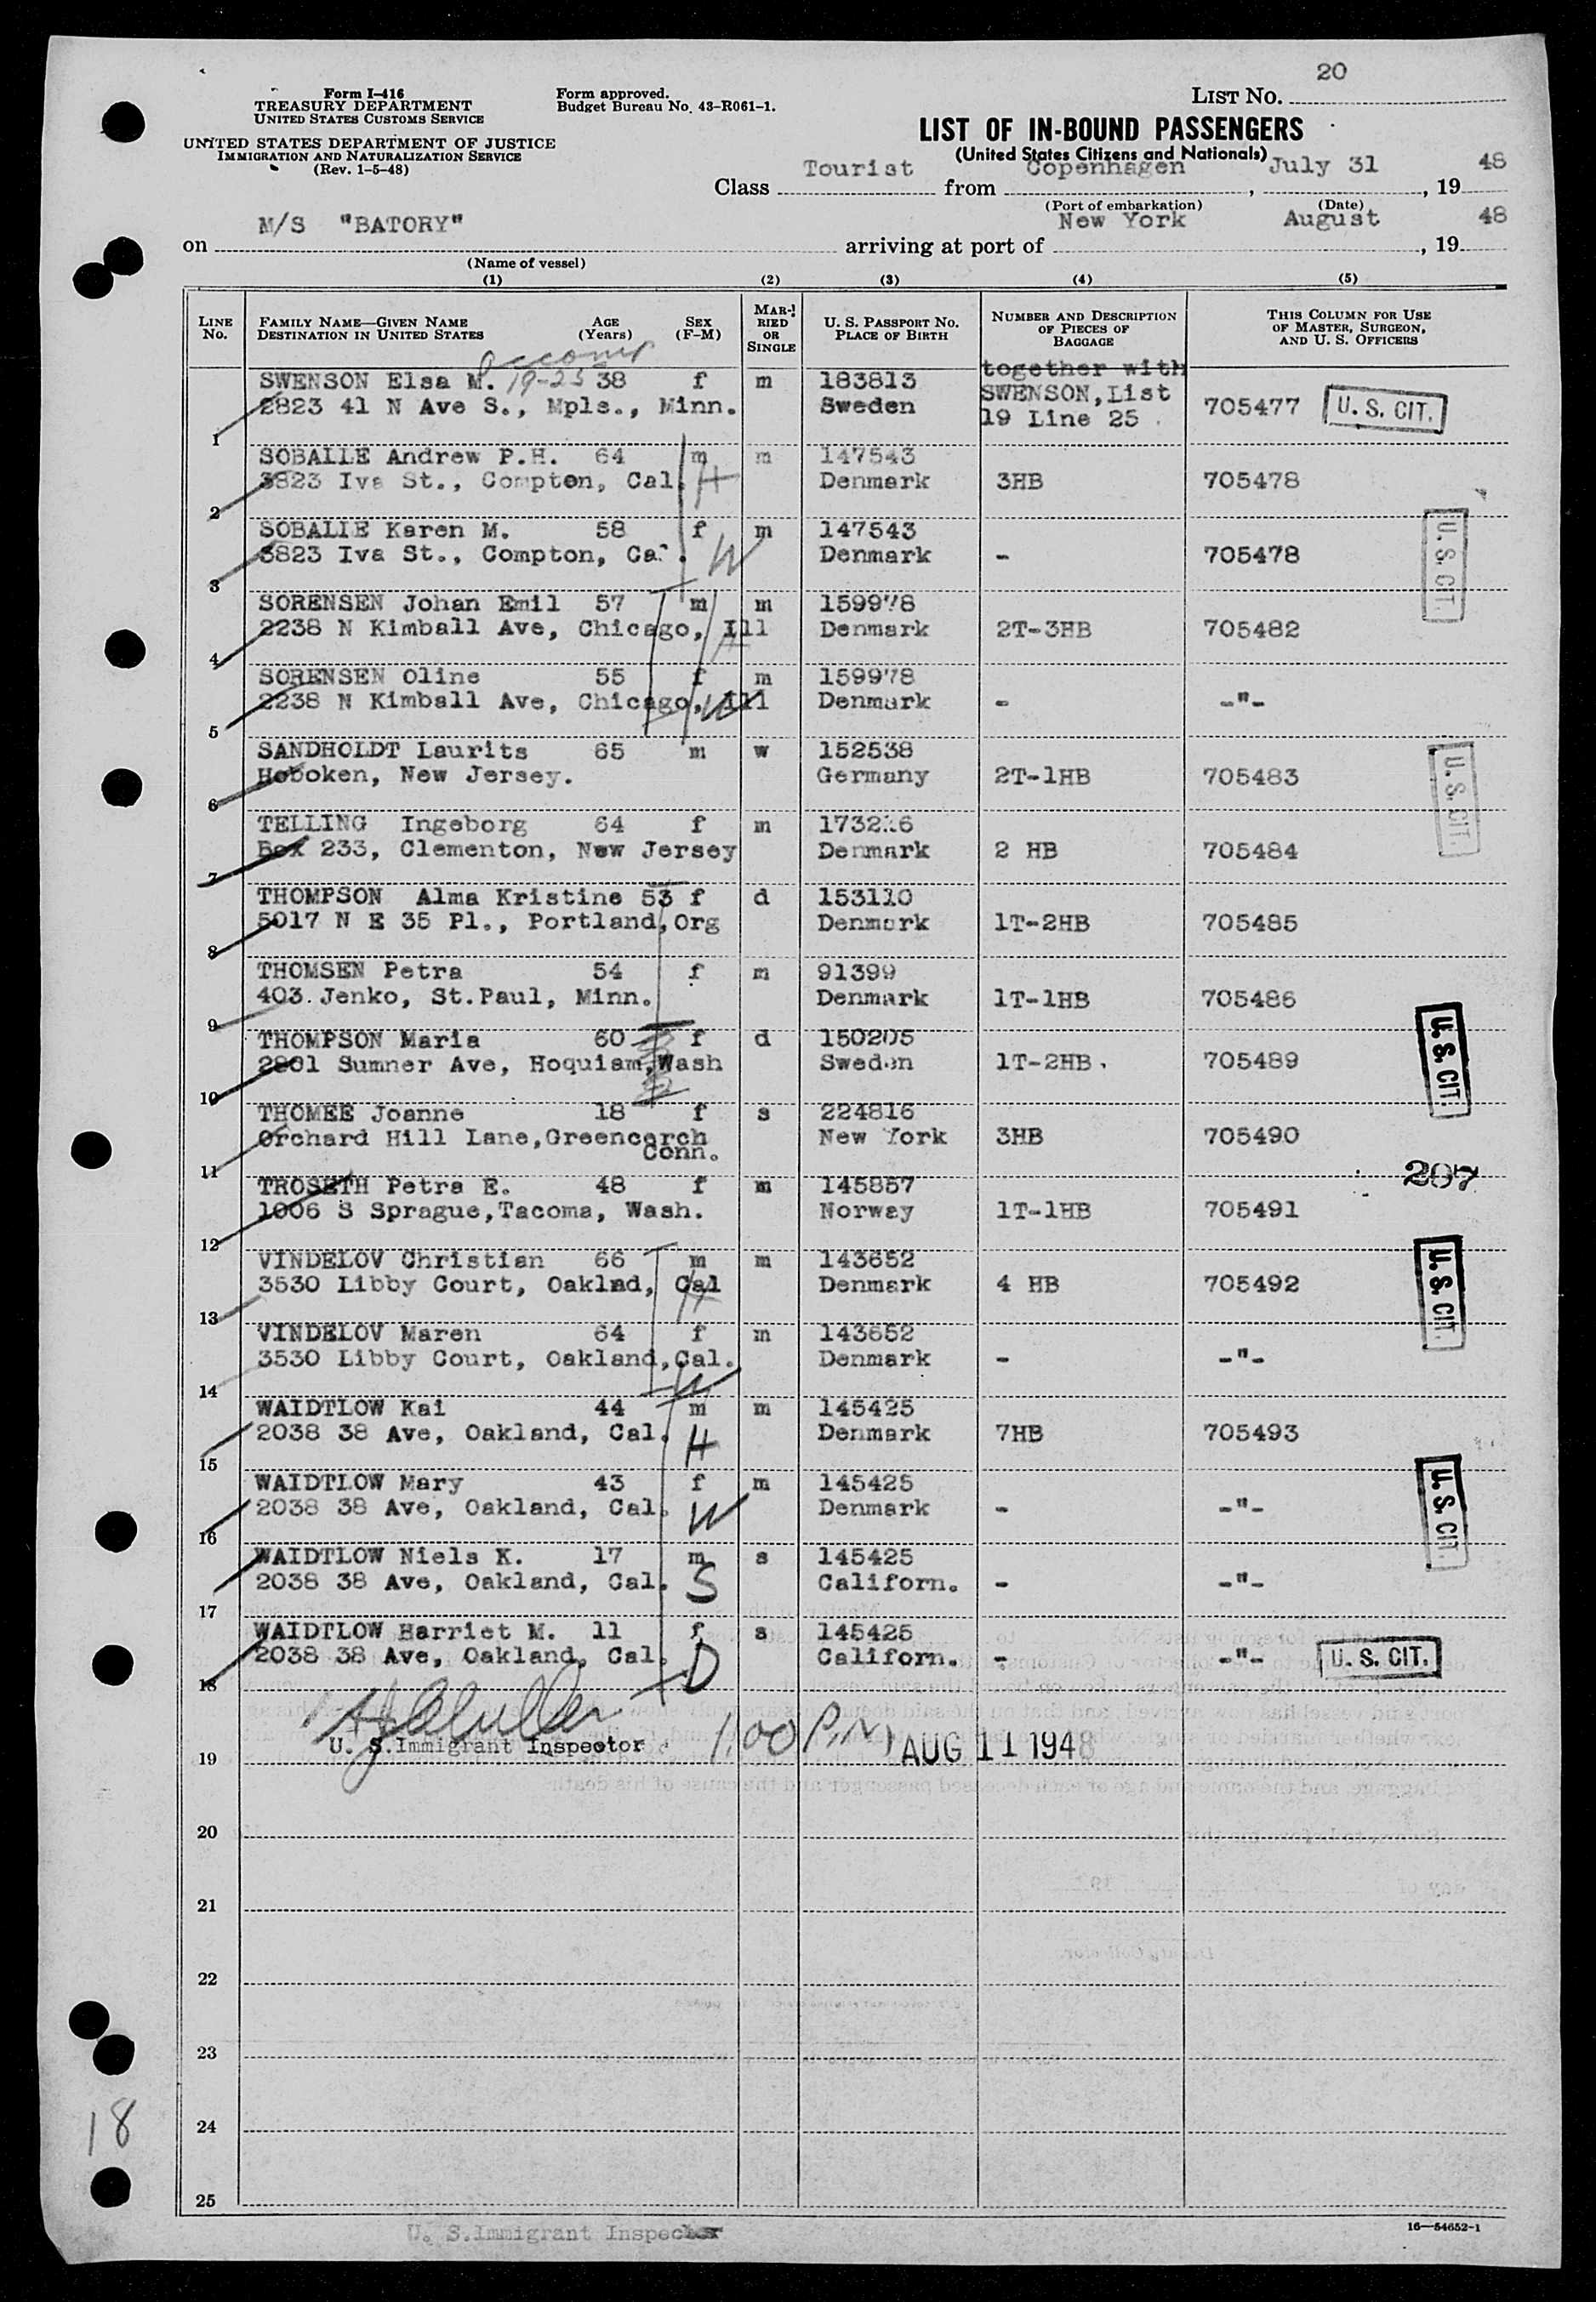 20
Form I-416
TREASURY DEPARTMENT
UNITED STATES CUSTOMS SERVICE
UNITED STATES DEPARTMENT OF JUSTICE
IMMIGRATION AND NATURALIZATION SERVICE
(Rev. 1-5-48)
Form approved.
Budget Bureau No. 43-R061-1.
LIST NO.
LIST OF IN-BOUND PASSENGERS
(United States Citizens and Nationals)
Class Tourist from Copenhagen, July 31, 19 48
(Port of embarkation) (Date)
on M/S "BATORY" arriving at port of New York August, 19 48
(Name of vessel)
(1) (2) (3) (4) (5)
LINE NO. FAMILY NAME—GIVEN NAME DESTINATION IN UNITED STATES AGE (Years) SEX (F-M) MARRIED OR SINGLE U. S. PASSPORT NO. PLACE OF BIRTH NUMBER AND DESCRIPTION OF PIECES OF BAGGAGE THIS COLUMN FOR USE OF MASTER, SURGEON, AND U. S. OFFICERS
accomp
together with
SWENSON Elsa M. 19-25 38 f m 183813 SWENSON, List
2823 41 N Ave S., Mpls., Minn. Sweden 19 Line 25 705477 U. S. CIT.
1
SOBALLE Andrew P.H. 64 m m 147543
3823 Iva St., Compton, Cal. H Denmark 3HB 705478
2
SOBALLE Karen M. 58 f m 147543 U. S. CIT.
3823 Iva St., Compton, Ca . W Denmark - 705478
3
SORENSEN Johan Emil 57 m m 159978
2238 N Kimball Ave, Chicago, Ill H Denmark 2T-3HB 705482
4
SORENSEN Oline 55 f m 159978
2238 N Kimball Ave, Chicago, Ill W Denmark - -"-
5
SANDHOLDT Laurits 65 m w 152538 U. S. CIT.
Hoboken, New Jersey. Germany 2T-1HB 705483
6
TELLING Ingeborg 64 f m
Box 233, Clementon, New Jersey Denmark 2 HB 705484
7
THOMPSON Alma Kristine 53 f d 153110
5017 N E 35 Pl., Portland, Org Denmark 1T-2HB 705485
8
THOMSEN Petra 54 f m 91399
403 Jenko, St.Paul, Minn. Denmark 1T-1HB 705486
9
THOMPSON Maria 60 f d 150205 U. S. CIT.
2801 Sumner Ave, Hoquiam, Wash Sweden 1T-2HB. 705489
10
THOMEE Joanne 18 f s 224816
Orchard Hill Lane,Greencorch New York 3HB 705490
Conn.
11
207
TROSETH Petra E. 48 f m 145857
1006 S Sprague,Tacoma, Wash. Norway 1T-1HB 705491
12
VINDELOV Christian 66 m m 143652 U. S. CIT.
3530 Libby Court, Oaklnd, Cal H Denmark 4 HB 705492
13
VINDELOV Maren 64 f m 143652
3530 Libby Court, Oakland,Cal. W Denmark - -"-
14
WAIDTLOW Kai 44 m m 145425
2038 38 Ave, Oakland, Cal. H Denmark 7HB 705493
15
WAIDTLOW Mary 43 f m 145425 U. S. CIT.
2038 38 Ave, Oakland, Cal. W Denmark - -"-
16
WAIDTLOW Niels K. 17 m s 145425
2038 38 Ave, Oakland, Cal. S Californ. - -"-
17
WAIDTLOW Harriet M. 11 f s 145425
2038 38 Ave, Oakland, Cal. D Californ. - -"- U. S. CIT.
18
U. S.Immigrant Inspector 1,00 P.M AUG 11 1948
19
20
21
22
23
24
25
18
U. S.Immigrant Inspector
16—54652-1